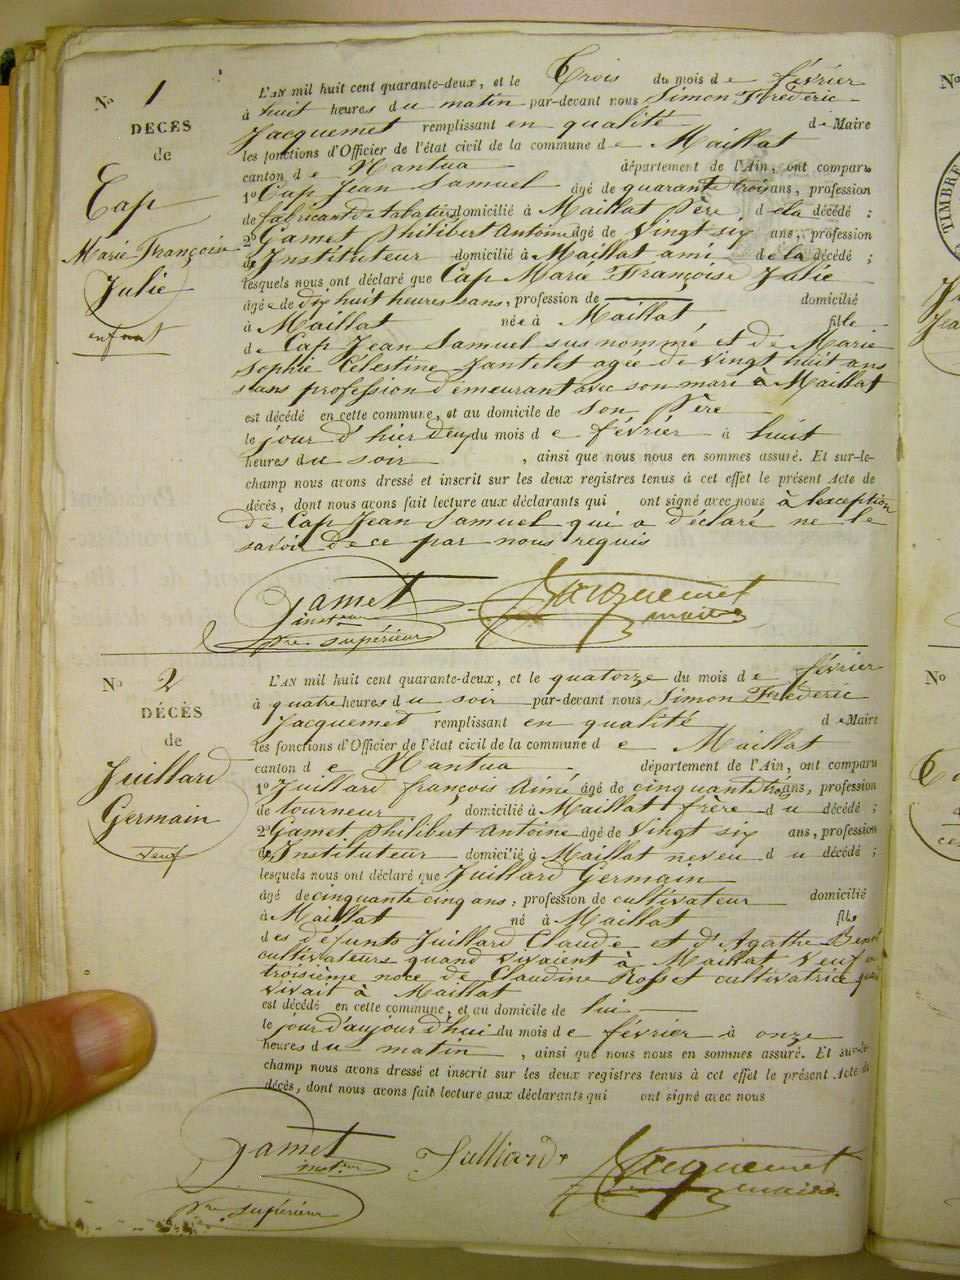 N° 1
DÉCÈS
de
Cap
Marie Françoise
Julie
enfant
L'AN mil huit cent quarante-deux, et le Trois du mois de février
à huit heures du matin par-devant nous Simon Frédéric
Jacquemet remplissant en qualité de Maire
les fonctions d'Officier de l'état civil de la commune de Maillat
canton de Nantua département de l'Ain, ont comparu
1° Cap Jean Samuel âgé de quarante trois ans, profession
de fabricant de tabatières domicilié à Maillat Père de la décédé ;
2° Gamet Philibert Antoine âgé de Vingt six ans, profession
de Instituteur domicilié à Maillat ami de la décédé ;
lesquels nous ont déclaré que Cap Marie Françoise Julie
âgée de dix huit heures ans, profession de domicilié
à Maillat née à Maillat fille
de Cap Jean Samuel sus nommé et de Marie
Sophie Célestine Jantelet agée de Vingt huit ans
sans profession demeurant avec son mari à Maillat
est décédé en cette commune, et au domicile de son Père
le jour d'hier deux du mois de février à huit
heures du soir , ainsi que nous nous en sommes assuré. Et sur-le-
champ nous avons dressé et inscrit sur les deux registres tenus à cet effet le présent Acte de
décès, dont nous avons fait lecture aux déclarants qui ont signé avec nous à lexception
de Cap Jean Samuel qui a déclaré ne le
savoir de ce par nous requis
Gamet Jacquemet
institeur maire
supérieur
N° 2
DÉCÈS
de
Juillard
Germain
veuf
L'AN mil huit cent quarante-deux, et le quatorze du mois de février
à quatre heures du soir par-devant nous Simon Frédéric
Jacquemet remplissant en qualité de Maire
les fonctions d'Officier de l'état civil de la commune de Maillat
canton de Nantua département de l'Ain, ont comparu
1° Juillard françois Aimé âgé de cinquante trois ans, profession
de tourneur domicilié à Maillat frère du décédé ;
2° Gamet Philibert Antoine âgé de Vingt six ans, profession
de Instituteur domicilié à Maillat neveu du décédé ;
lesquels nous ont déclaré que Juillard Germain
âgé de cinquante cinq ans, profession de cultivateur domicilié
à Maillat né à Maillat fils
des défunts Juillard Claude et d'Agathe Benoit
cultivateurs quand vivaient à Maillat Veuf en
troisième noce de Claudine Rosset cultivatrice quand
vivait à Maillat
est décédé en cette commune, et au domicile de lui
le jour d'aujourd'hui du mois de février à onze
heures du matin , ainsi que nous nous en sommes assuré. Et sur-le-
champ nous avons dressé et inscrit sur les deux registres tenus à cet effet le présent Acte de
décès, dont nous avons fait lecture aux déclarants qui ont signé avec nous
Gamet Julliard Jacquemet
maire
supérieur
N°
TIMBRE
N°